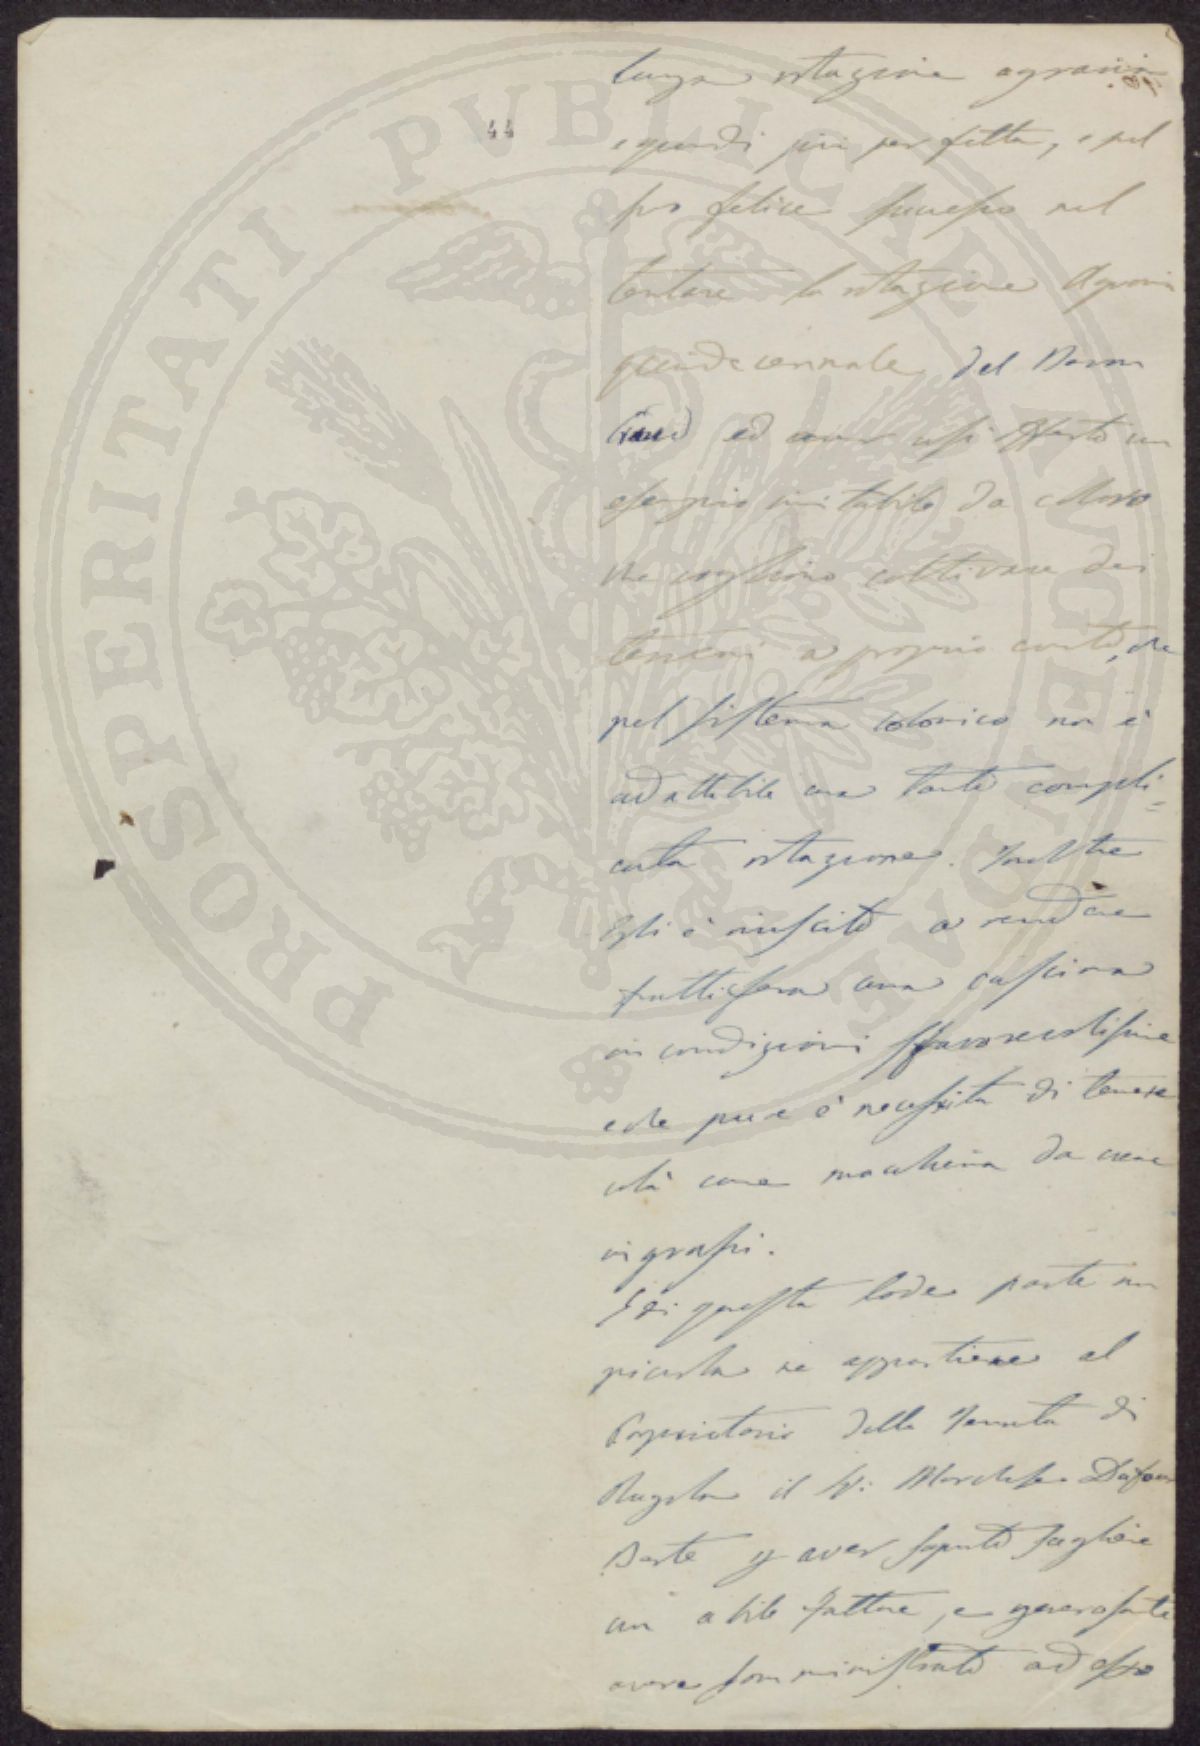 44
lunga rotazione agraria
e quindi più perfetta, e pel
suo felice successo nel
tentare la rotazione Agraria
quindecennale del Baron
Crud ed aver così offerto un
esempio imitabile da coloro
che vogliono coltivare dei
terreni a proprio conto, che
pel sistema Colonico non è
adattabile una tanto compli=
cata rotazione. Inoltre
Egli è riuscito a rendere
fruttifera una cascina
in condizioni sfavorevolissime
e che pure è necessità di tenere
colà come macchina da
ingrassi.
E di questa lode parte non
piccola ne appartiene al
Proprietario della Tenuta di
il Sr: Marchese
Berte p aver saputo scegliere
un abile fattore, e
avere somministrato ad esso
PROSPERITATI PVBLICAE AVGENDAE